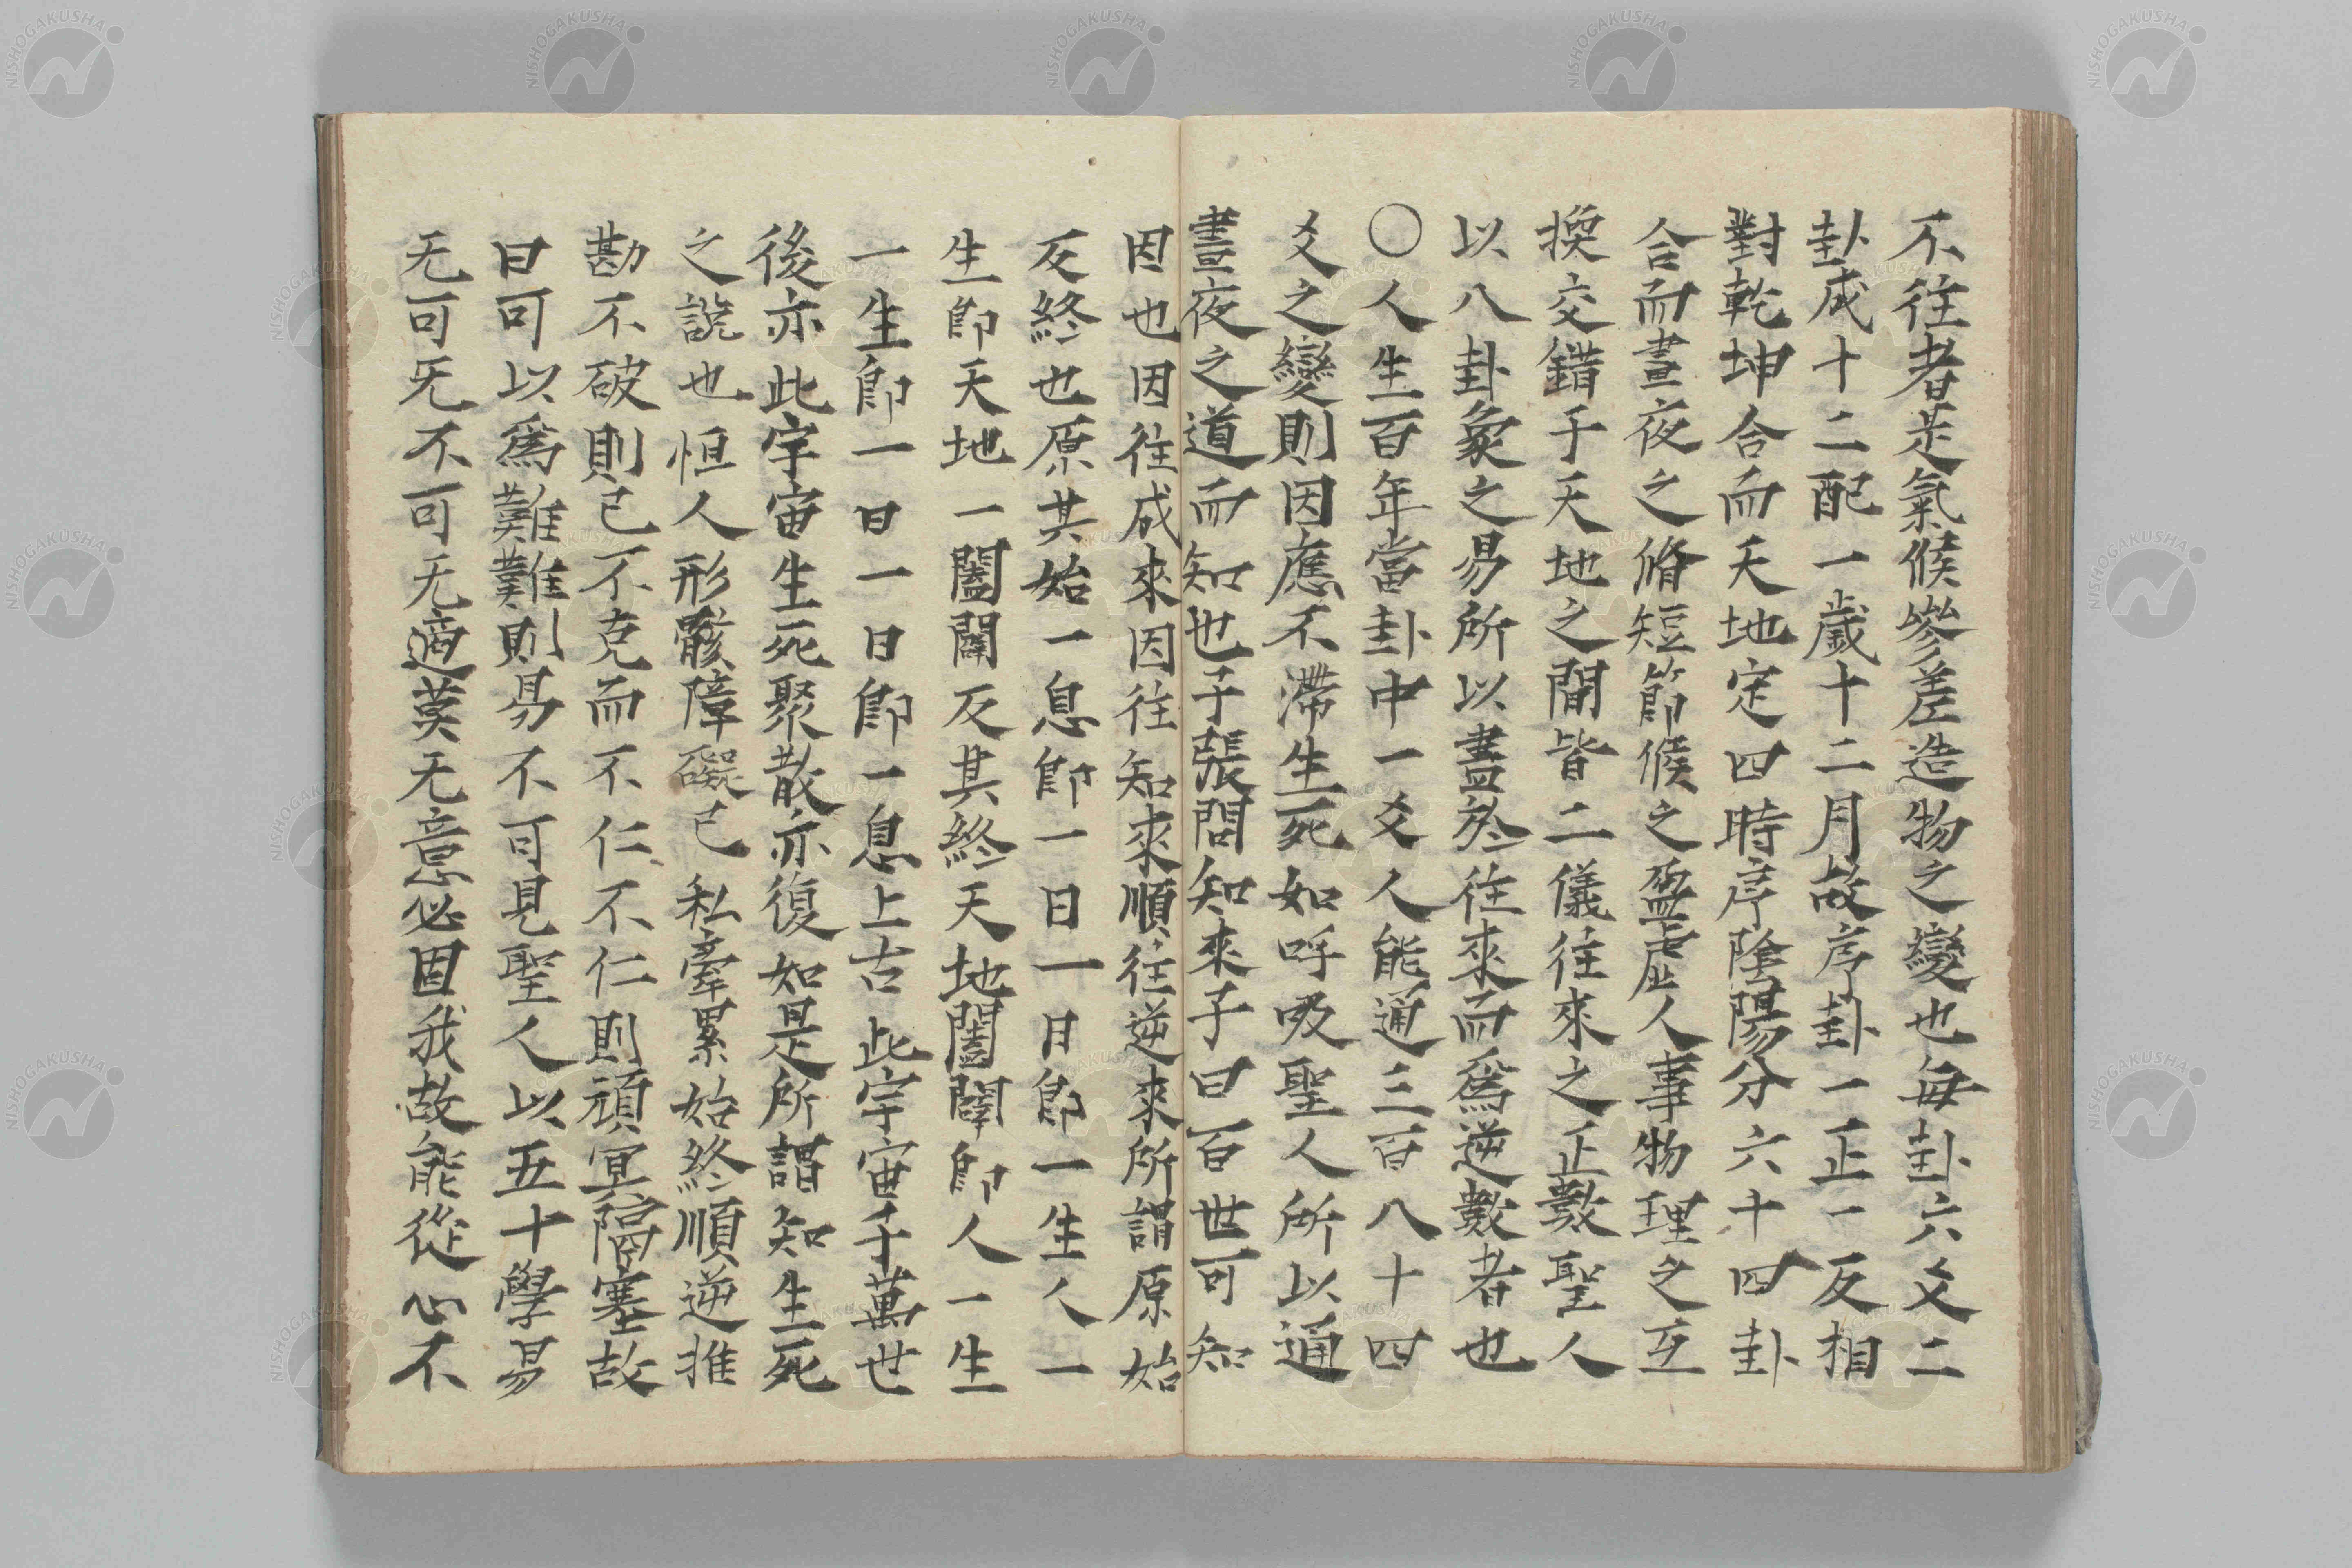 不往者是氣候參差造物之變也每卦六爻二
卦成十二配一歲十二月故序卦一正一反相
對乾坤合而天地定四時序陰陽分六十四卦
合而晝夜之脩短節候之盈虛人事物理之互
換交錯于天地之間皆二儀往來之正數聖人
以八卦象之易所以盡於往來而爲逆數者也
○人生百年當卦中一爻人能通三百八十四
爻之變則因應不滯生死如呼吸聖人所以通
晝夜之道而知也子張問知來子曰百世可知
因也因往成來因往知來順往逆來所謂原始
反終也原其始一息卽一日一日卽一生人一
生卽天地一闔闢反其終天地闔闢卽人一生
一生卽一日一日卽一息上古此宇宙千萬世
後亦此宇宙生死聚散亦復如是所謂知生死
之說也恒人形骸障礙己私牽累始終順逆推
勘不破則己不克而不仁不仁則頑冥隔塞故
曰可以爲難難則易不可見聖人以五十學易
无可无不可无適莫无意必固我故能從心不
NISHOGAKUSHA